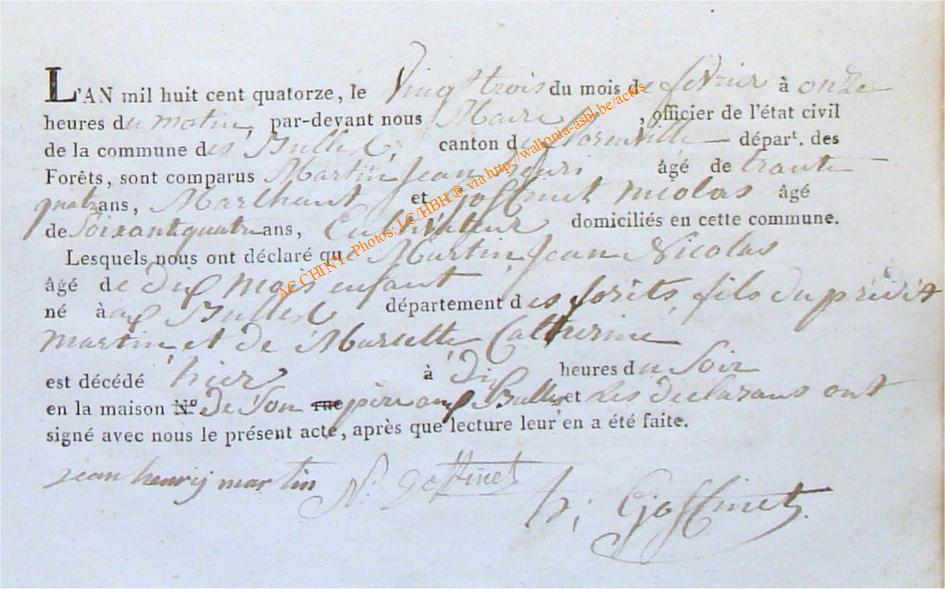 L'AN mil huit cent quatorze, le Vingt trois du mois de fevrier à onze
heures du matin, par-devant nous Maire, officier de l'état civil
de la commune des Bulles, canton de florenville départ. des
Forêts, sont comparus Martin Jean henri âgé de trante
quatre ans, Marchant et Goffinet nicolas âgé
de Soixante quatre ans, Cultivateur domiciliés en cette commune.
Lesquels nous ont déclaré que Martin Jean Nicolas
âgé de dix mois enfant
né à aux Bulles département des forêts, fils du prédit
martin et de Marsette Catherine
est décédé hier à dix heures du Soir
en la maison N.º de Son rue père aux Bulles et Les declarans ont
signé avec nous le présent acte, après que lecture leur en a été faite.
jean henrij martin N. goffinet
h; Goffinet
AC CHINY - Photos: LC/HBH © via http://wallonia-asbl.be/actes